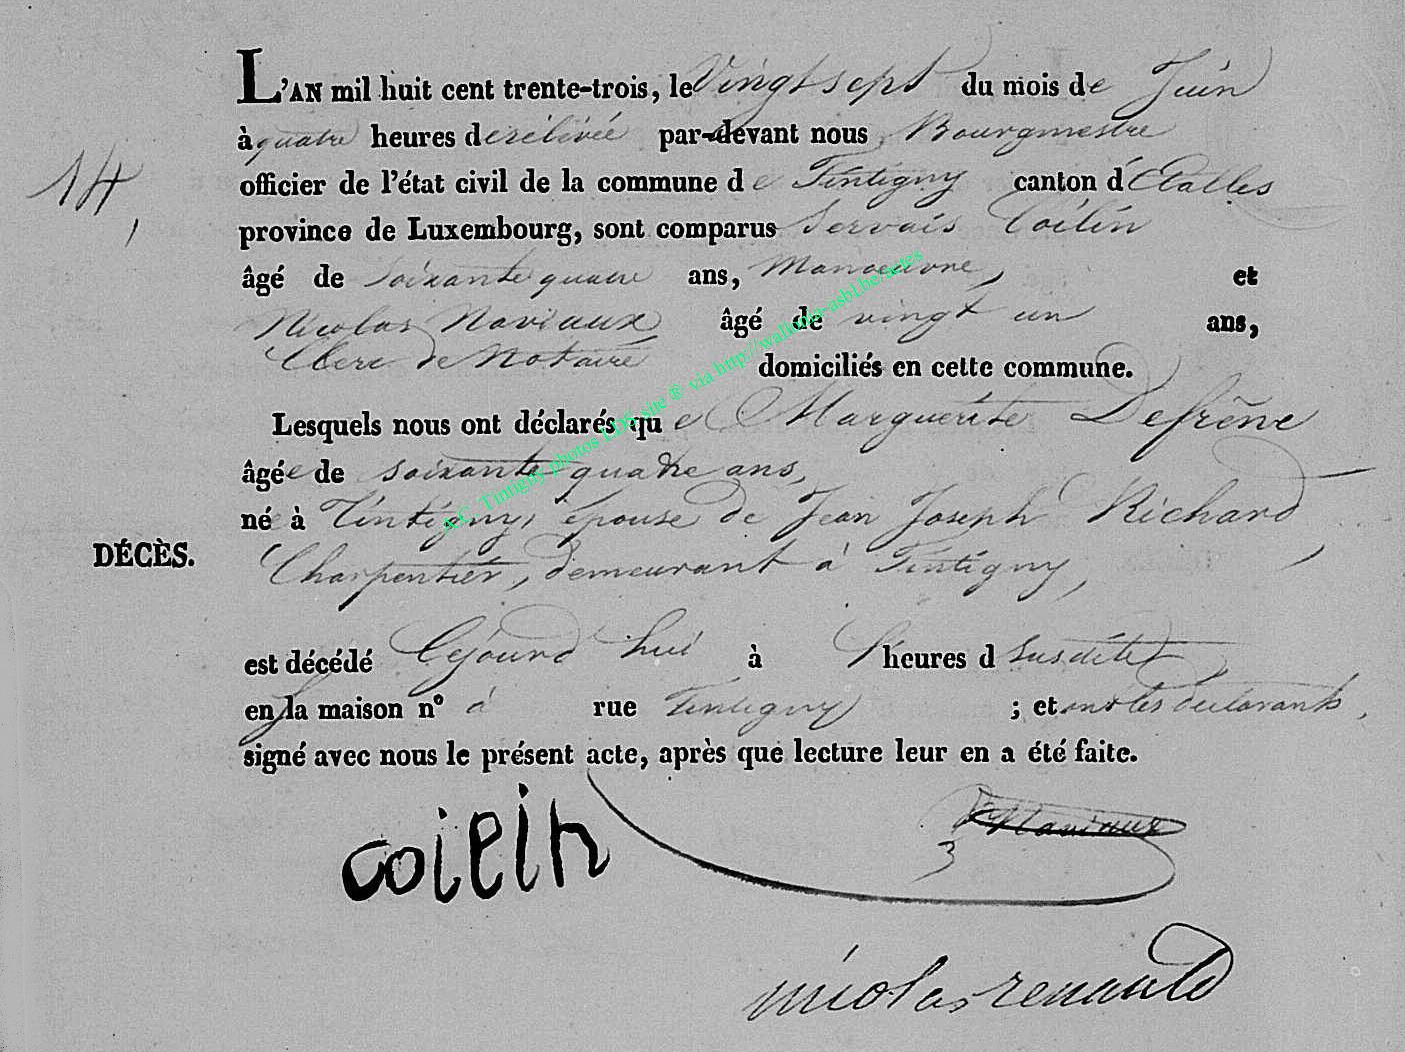 L'AN mil huit cent trente-trois, le Vingt sept du mois de Juin
à quatre heures de rélévée par-devant nous Bourgmestre
officier de l'état civil de la commune de Tintigny canton d'Etalles
14,
province de Luxembourg, sont comparus Servais Coilin
âgé de soixante quatre ans, Manoeuvre, et
Nicolas Naviaux âgé de vingt un ans,
Clerc de Notaire domiciliés en cette commune.
Lesquels nous ont déclarés que Marguerite Defrêne
âgée de soixante quatre ans,
né à Tintigny, épouse de Jean Joseph Richard,
DÉCÈS.
Charpentier, demeurant à Tintigny,
est décédé Cejourd'hui à l'heures d susdite
en la maison nº à rue Tintigny ; et ont les déclarants
signé avec nous le présent acte, après que lecture leur en a été faite.
A.C. Tintigny photos LDS, site ® via http://wallonia-asbl.be/actes
coilin
Naviaux
nicolas renauld